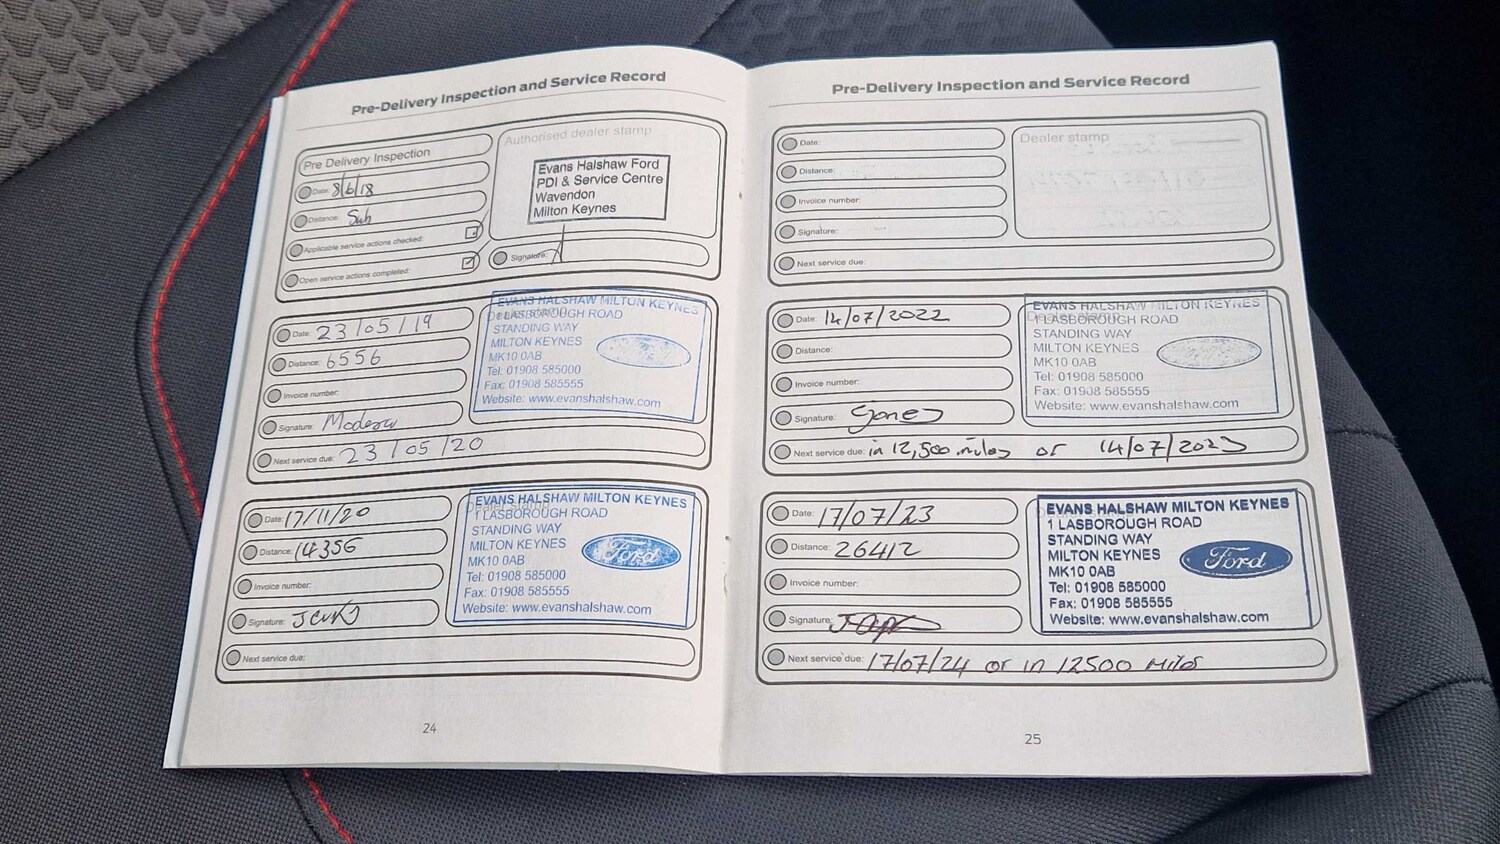 Pre-Delivery Inspection and Service Record
Pre Delivery Inspection
Date: 8/6/18
Distance:
Applicable service actions checked:
Open service actions completed:
Authorised dealer stamp
Evans Halshaw Ford
PDI & Service Centre
Wavendon
Milton Keynes
Signature:
Date: 23/05/19
Distance: 6556
Invoice number:
Signature:
Next service due: 23/05/20
Dealer stamp
EVANS HALSHAW MILTON KEYNES
1 LASBOROUGH ROAD
STANDING WAY
MILTON KEYNES
MK10 0AB
Tel: 01908 585000
Fax: 01908 585555
Website: www.evanshalshaw.com
Date: 17/11/20
Distance: 14356
Invoice number:
Signature:
Next service due:
Dealer stamp
EVANS HALSHAW MILTON KEYNES
1 LASBOROUGH ROAD
STANDING WAY
MILTON KEYNES
MK10 0AB
Tel: 01908 585000
Fax: 01908 585555
Website: www.evanshalshaw.com
Ford
24
Pre-Delivery Inspection and Service Record
Date:
Distance:
Invoice number:
Signature:
Next service due:
Dealer stamp
Date: 14/07/2022
Distance:
Invoice number:
Signature: Jones
Next service due: in 12,500 miles or 14/07/2023
Dealer stamp
EVANS HALSHAW MILTON KEYNES
1 LASBOROUGH ROAD
STANDING WAY
MILTON KEYNES
MK10 0AB
Tel: 01908 585000
Fax: 01908 585555
Website: www.evanshalshaw.com
Date: 17/07/23
Distance: 26412
Invoice number:
Signature:
Next service due: 17/07/24 or in 12500 miles
EVANS HALSHAW MILTON KEYNES
1 LASBOROUGH ROAD
STANDING WAY
MILTON KEYNES
MK10 0AB
Tel: 01908 585000
Fax: 01908 585555
Website: www.evanshalshaw.com
Ford
25